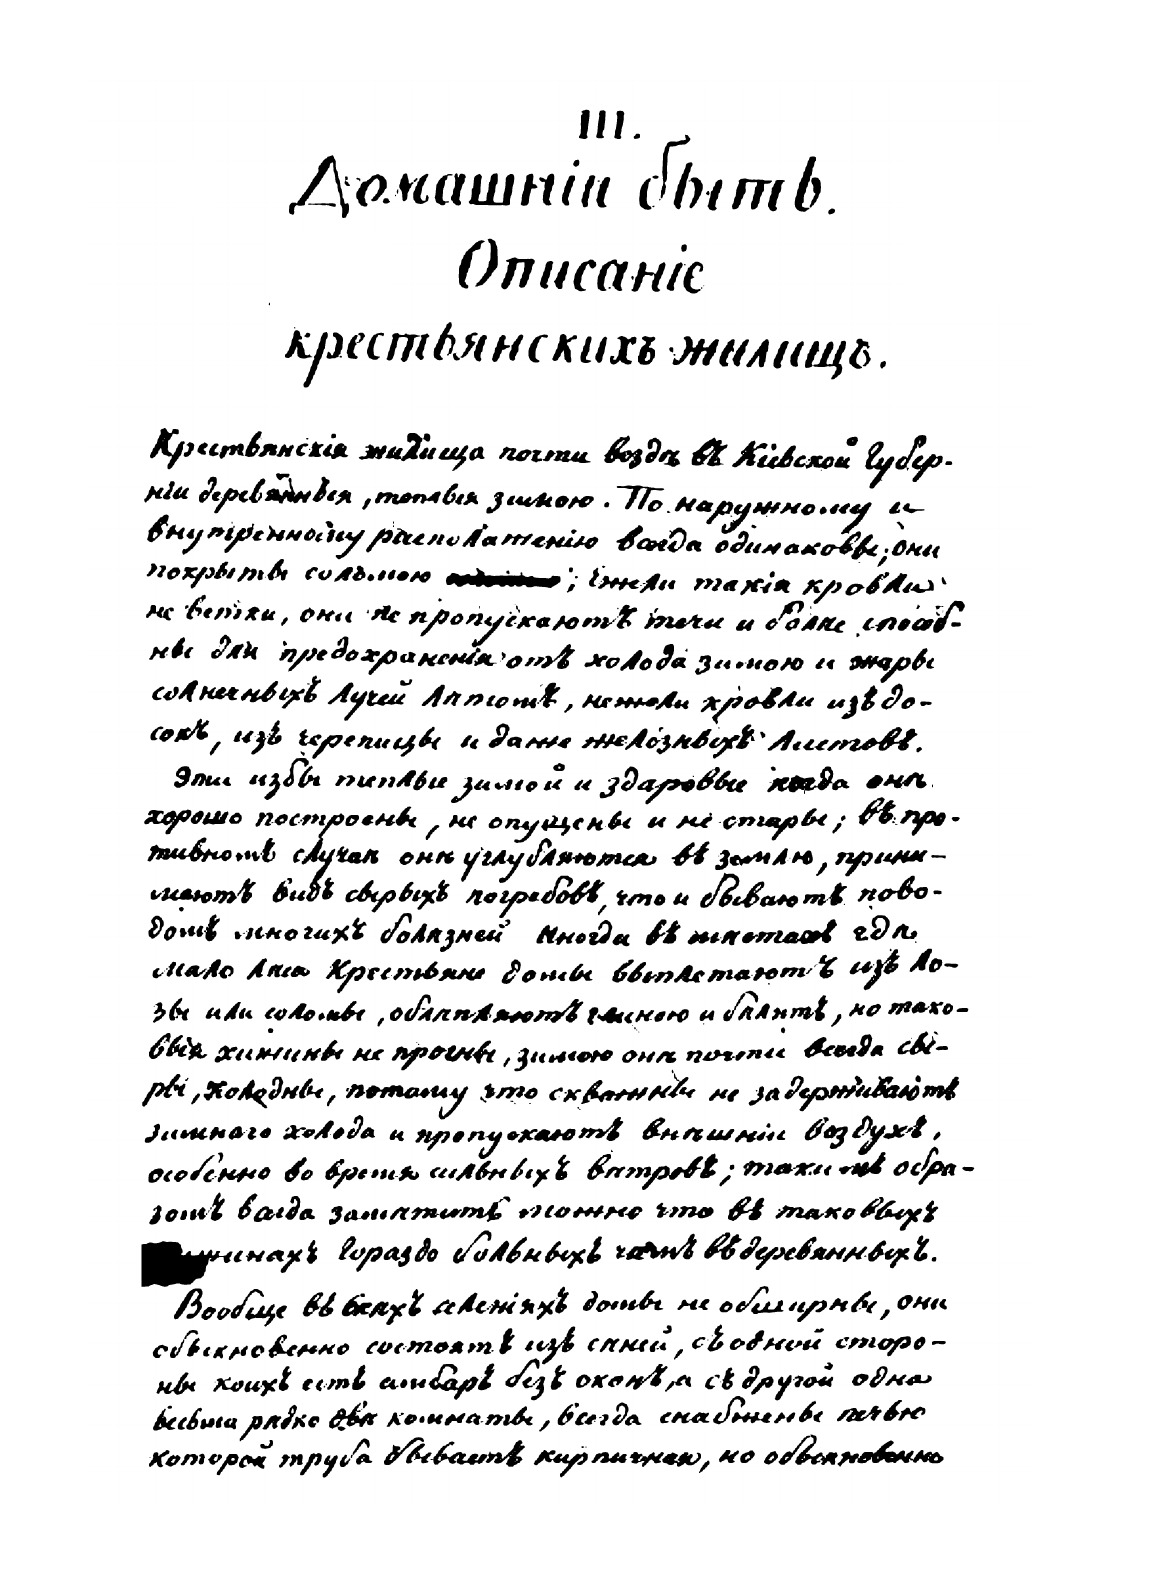 III.
Домашнiи бытъ.
Описанiе
крестьянскихъ жилищъ.
Крестьянскiя жилища почти везда въ Кiевской Губер-
нiи деревянныя, теплыя зимою. По наружному и
внутренному расположенiю всегда одинаковы; они
покрыты соломою ; такiя кровли
не ветхи, они не пропускаютъ течи и болѣе способ-
ны для предохраненiя отъ холода зимою и жары
солнечныхъ лучей лѣтомъ, нежели кровли изъ до-
сокъ, изъ черепицы и даже желѣзныхъ листовъ.
Эти избы теплые зимой и здаровые когда онѣ
хорошо построены, не опущены и не стары; въ про-
тивномъ случаѣ онѣ углубляются въ землю, прини-
маютъ видъ сырыхъ погребовъ, что и бываютъ пово-
домъ многихъ болѣзней Иногда въ мѣстахъ гдѣ
мало лѣса Крестьяне домы выплетаютъ изъ ло-
зы или соломы, облѣпляютъ глиною и бѣлятъ, но тако-
выя хижины не прочны, зимою онѣ почти всегда сы-
ры, холодны, потому что скважины не задерживаютъ
зимнаго холода и пропускаютъ внѣшнiи воздухъ,
особенно во время сильныхъ вѣтровъ; такимъ обра-
зомъ всегда замѣтить можно что въ таковыхъ
хижинахъ гораздо больныхъ чѣмъ въ деревянныхъ.
Вообще въ всѣхъ селенiяхъ домы не обширны, они
обыкновенно состоятъ изъ сѣней, съ одной сторо-
ны коихъ есть амбаръ безъ оконъ, а съ другой одна
весьма рядко двѣ комнаты, всегда снабжены печью
которой труба бываетъ кирпичная, но обыкновенно